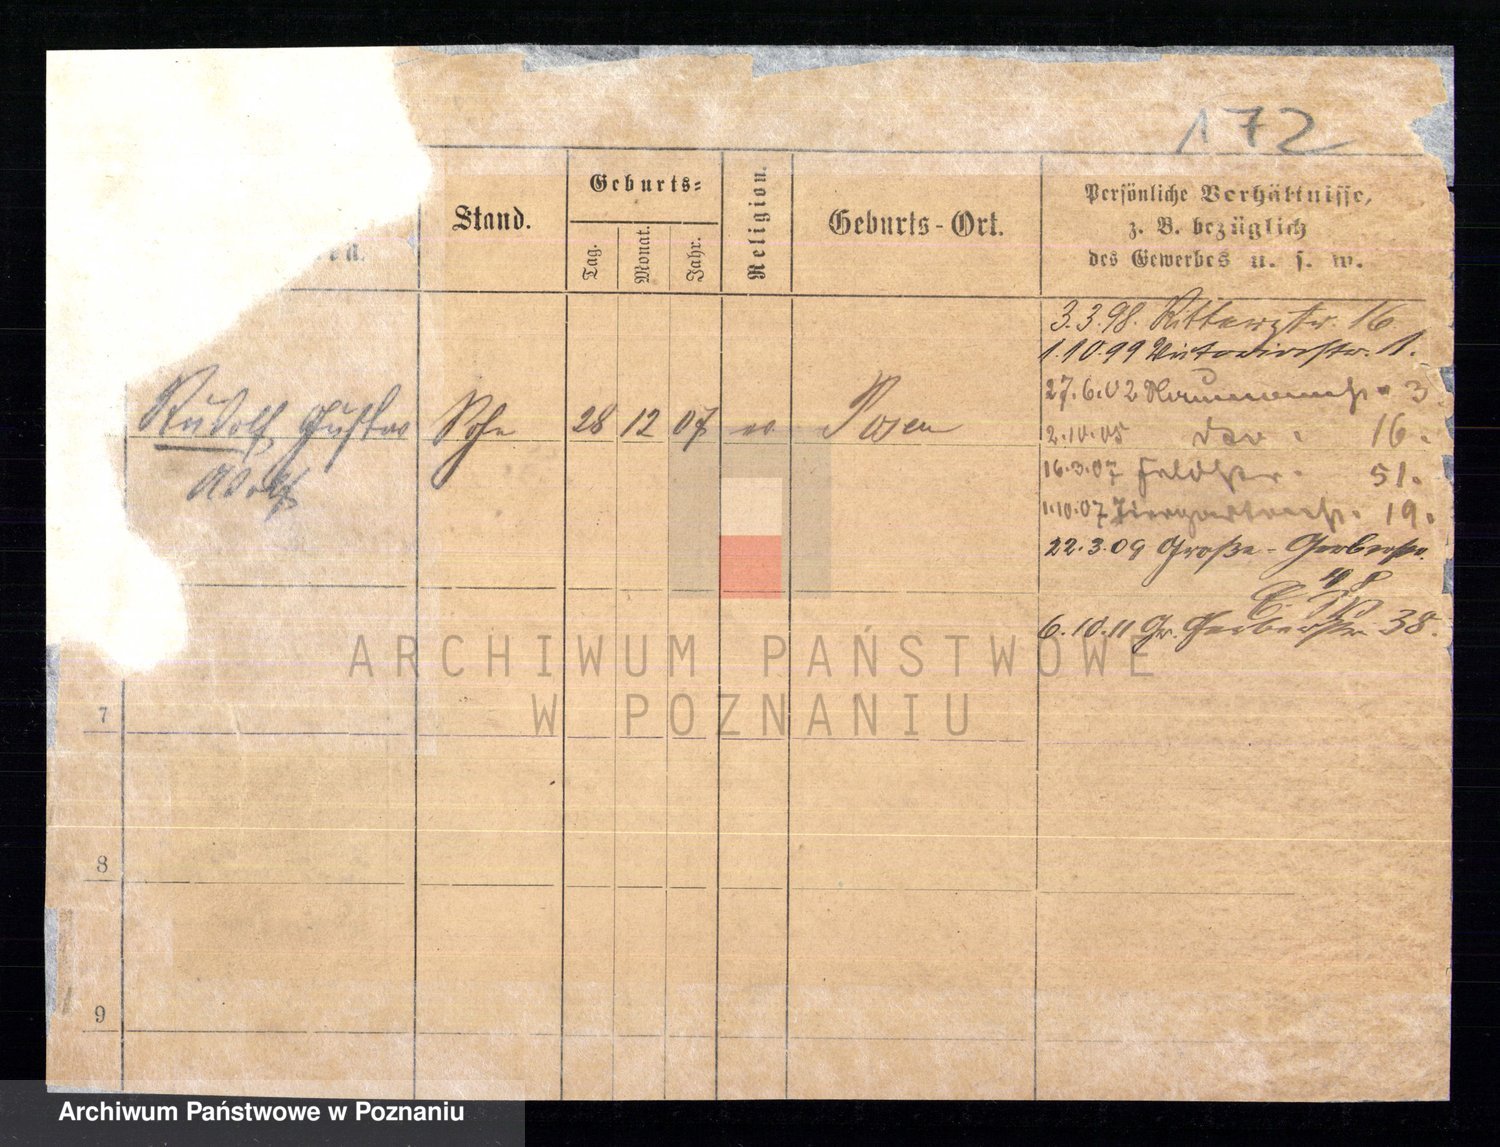 172
Stand.
Geburts-
Tag.
Monat.
Jahr.
Religion.
Geburts-Ort.
Persönliche Verhältnisse,
z. B. bezüglich
des Gewerbes u. s. w.
3.3.98. Ritterstr. 16
1.10.99 Victoriastr. 1.
27.6.02 Naumannstr. 3
2.10.05 16.
Rudolf Gustav Sohn 28 12 07 ev Posen
Adolf
16.3.07 Feldstr. 51.
1.10.07 Tiergartenstr. 19.
22.3.09 Große-Gerberstr.
48
6.10.11 Gr. Gerberstr. 38.
ARCHIWUM PAŃSTWOWE
W POZNANIU
7
8
9
Archiwum Państwowe w Poznaniu